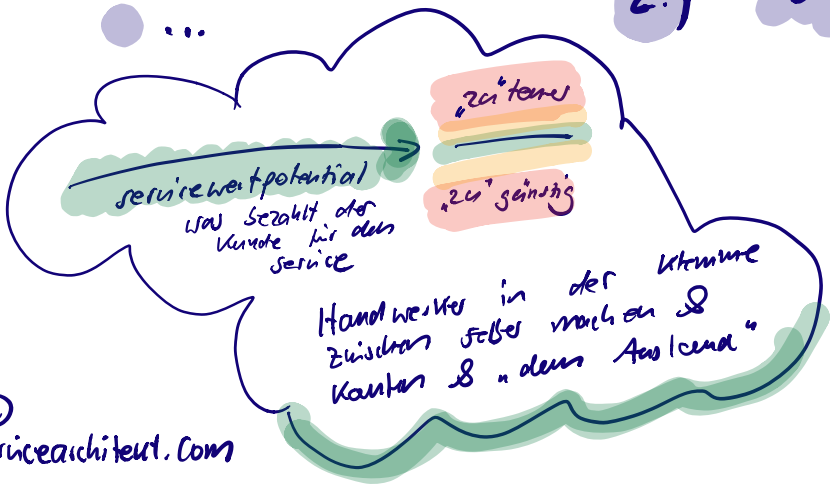 ...
"zu" teuer
servicewertpotential
was bezahlt der
Kunde für den
service
"zu" günstig
Handwerker in der Klemme
zwischen selber machen &
Kanton & "dem Ausland"
rvicearchitekt.com